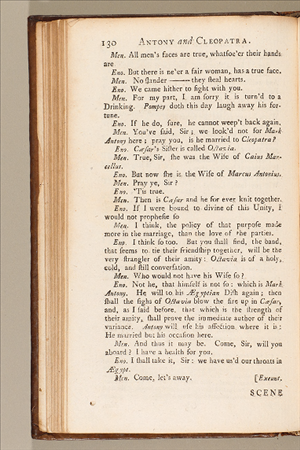 130 ANTONY and CLEOPATRA.
Men. All men's faces are true, whatsoe'er their hands
are
Eno. But there is ne'er a fair woman, has a true face.
Men. No slander —— they steal hearts.
Eno. We came hither to fight with you.
Men. For my part, I am sorry it is turn'd to a
Drinking. Pompey doth this day laugh away his for-
tune.
Eno. If he do, sure, he cannot weep't back again.
Men. You've said, Sir; we look'd not for Mark
Antony here; pray you, is he married to Cleopatra?
Eno. Cæsar's Sister is called Octavia.
Men. True, Sir, she was the Wife of Caius Mar-
cellus.
Eno. But now she is the Wife of Marcus Antonius.
Men. Pray ye, Sir?
Eno. 'Tis true.
Men. Then is Cæsar and he for ever knit together.
Eno. If I were bound to divine of this Unity, I
would not prophesie so
Men. I think, the policy of that purpose made
more in the marriage, than the love of the parties.
Eno. I think so too. But you shall find, the band,
that seems to tie their friendship together, will be the
very strangler of their amity: Octavia is of a holy,
cold, and still conversation.
Men. Who would not have his Wife so?
Eno. Not he, that himself is not so: which is Mark
Antony. He will to his Ægyptian Dish again; then
shall the sighs of Octavia blow the fire up in Cæsar,
and, as I said before, that which is the strength of
their amity, shall prove the immediate author of their
variance. Antony will use his affection where it is:
He married but his occasion here.
Men. And thus it may be. Come, Sir, will you
aboard? I have a health for you.
Eno. I shall take it, Sir: we have us'd our throats in
Ægypt.
Men. Come, let's away. [Exeunt.
SCENE